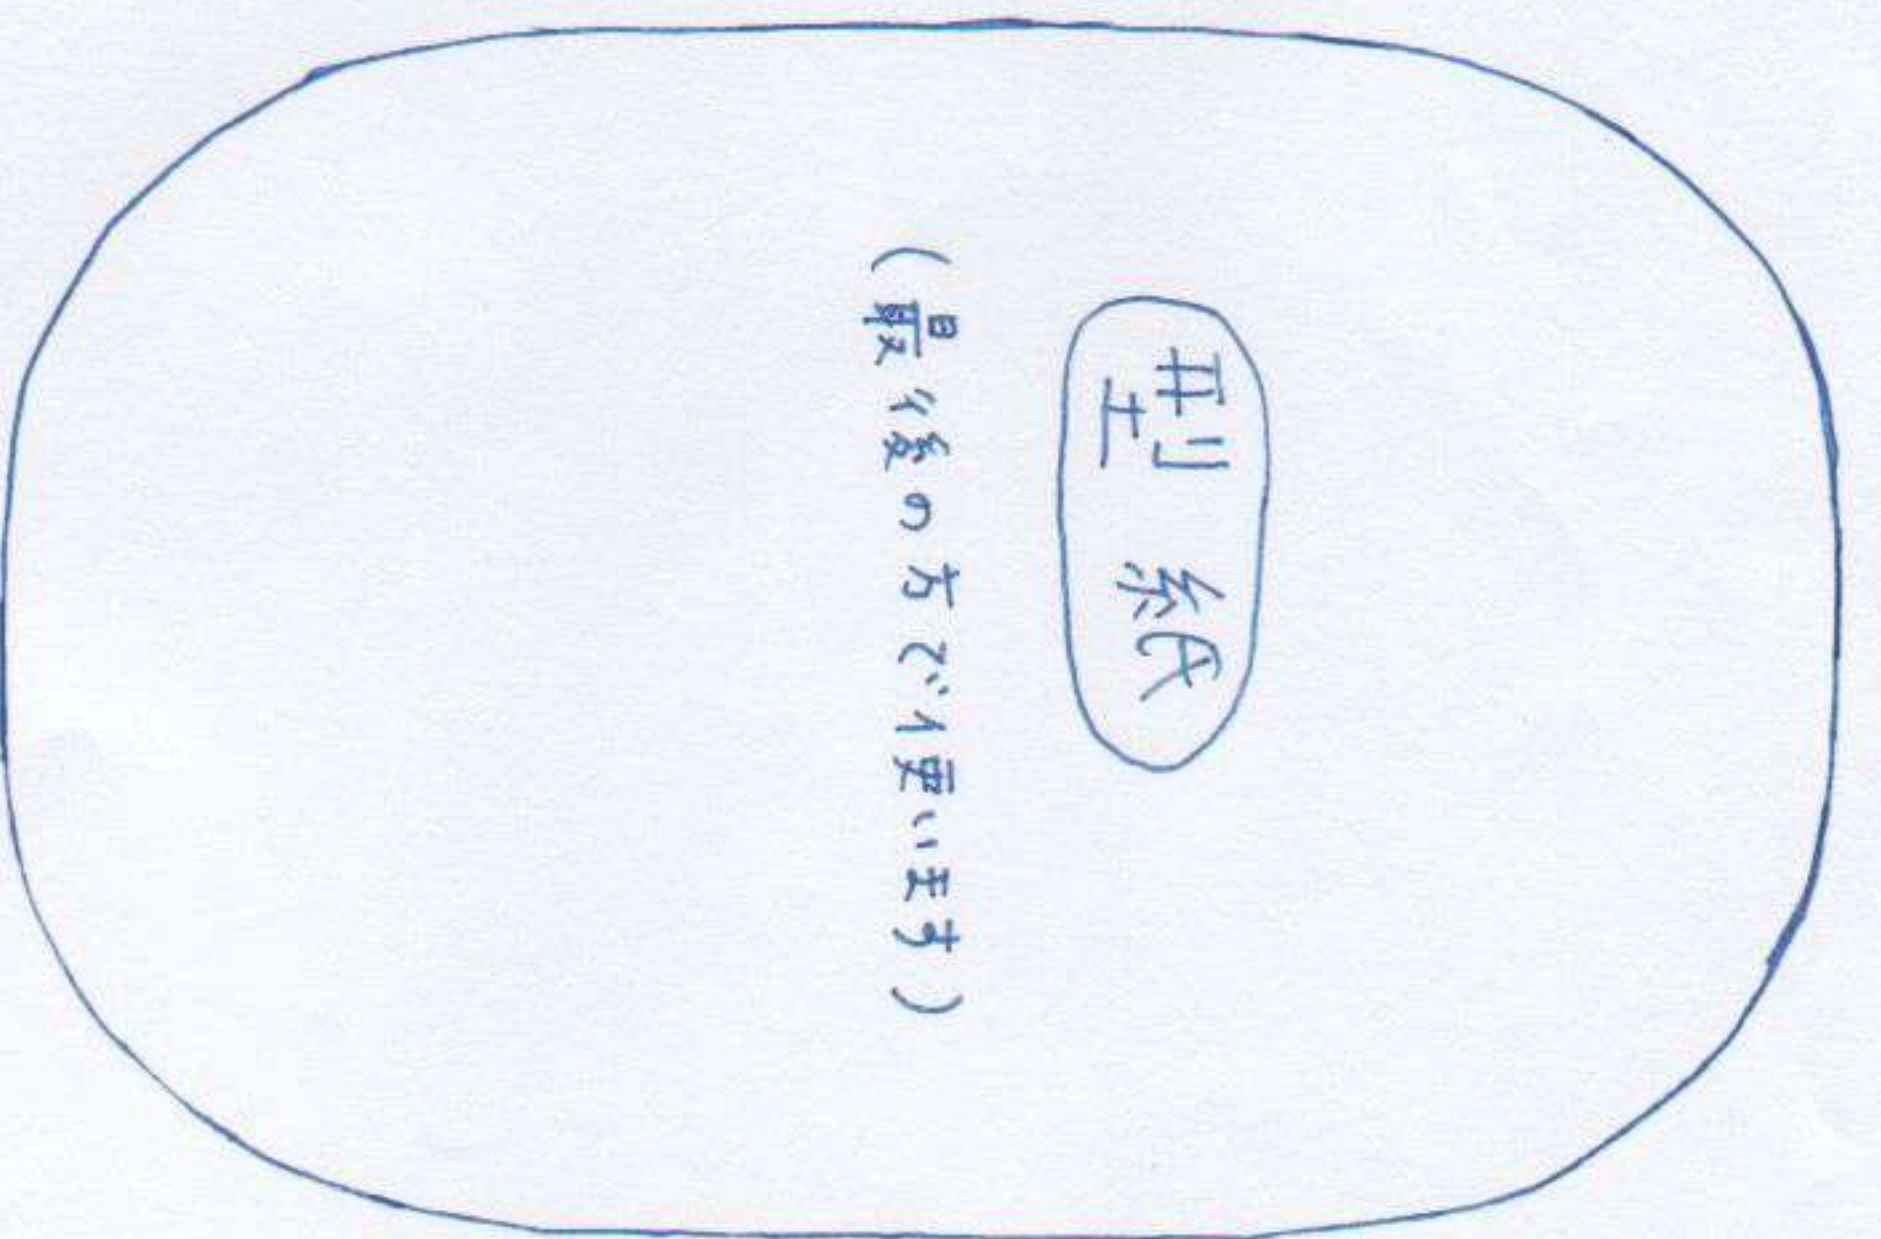 型紙
(最後の方で使います)